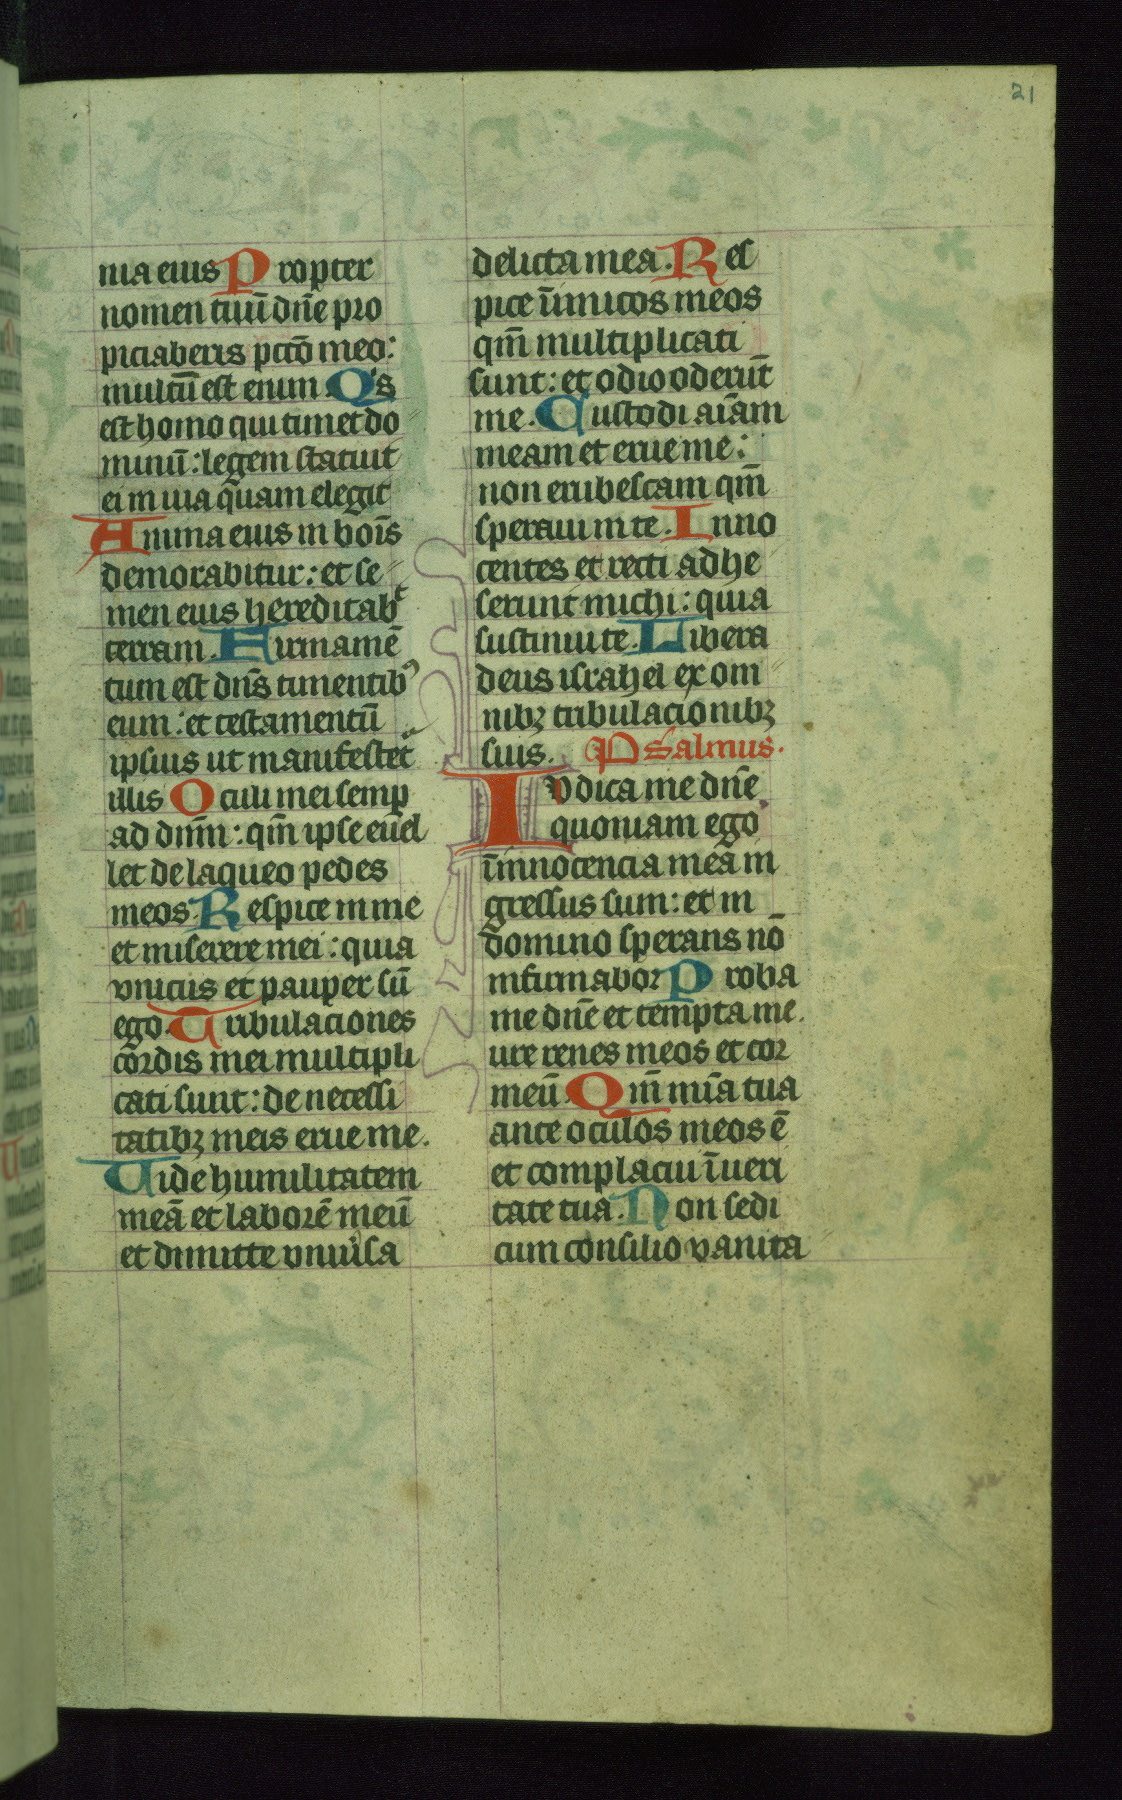 21
nia eius Propter
nomen tuū dn̄e pro
piciaberis pctō meo:
multū est enim. Qⁱs
est homo qui timet do
minū: legem statuit
ei in uia quam elegit
Anima eius in boīs
demorabitur: et se
men eius hereditabᵗ
terram. Firmamē
tum est dn̄s timentibꝰ
eum: et testamentū
ipsius ut manifestetᵘʳ
illis Oculi mei semp
ad dn̄m: qm̄ ipse euel
let de laqueo pedes
meos. Respice in me
et miserere mei: quia
vnicus et pauper sū
ego. Tribulaciones
cordis mei multipli
cati sunt: de necessi
tatibꝫ meis erue me.
Uide humilitatem
meā et laborē meū
et dimitte vniuˢsa
delicta mea. Res
pice īnimicos meos
qm̄ multiplicati
sunt: et odio oderūt
me. Custodi aīam
meam et erue me:
non erubescam qm̄
speraui in te. Inno
centes et recti adhe
serunt michi: quia
sustinui te. Libera
deus israhel ex om
nibꝫ tribulacionibꝫ
suis. Psalmus.
Iudica me dn̄e
quoniam ego
īnnocencia meā in
gressus sum: et in
domino sperans nō
infirmabor Proba
me dn̄e et tempta me.
ure renes meos et cor
meū. Qm̄ mīa tua
ante oculos meos ē
et complacui ī ueri
tate tua. Non sedi
cum consilio vanita